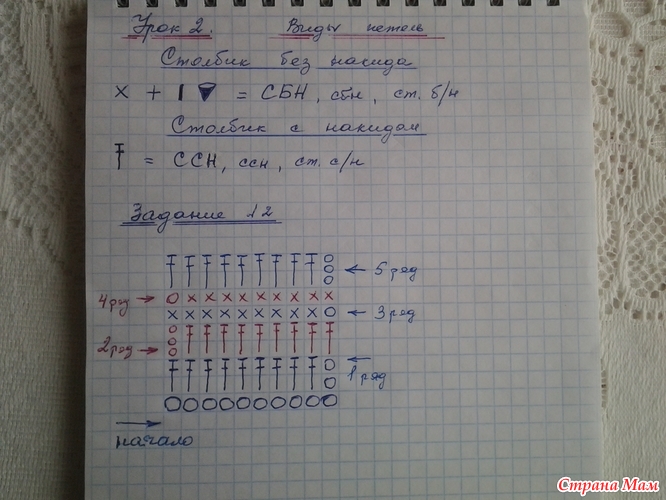 Урок 2. Виды петель
Столбик без накида
X + I ▼ = СБН, сбн, ст. б/н
Столбик с накидом
Ŧ = ССН, ссн, ст. с/н
Задание 12
← 5 ряд
4 ряд →
← 3 ряд
2 ряд →
← 1 ряд
→
начало
Страна Мам